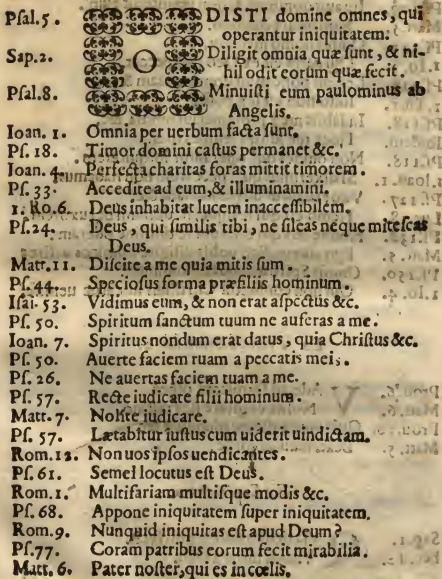 Psal.5. ODISTI domine omnes, qui
operantur iniquitatem.
Sap.2. Diligit omnia quæ sunt, & ni-
hil odit eorum quæ fecit.
Psal.8. Minuisti eum paulominus ab
Angelis.
Ioan. 1. Omnia per uerbum facta sunt.
Ps. 18. Timor domini castus permanet &c.
Ioan. 4. Perfecta charitas foras mittit timorem.
Ps. 33. Accedite ad eum, & illuminamini.
1. Ro.6. Deus inhabitat lucem inaccessibilem.
Ps.24. Deus, qui similis tibi, ne sileas neque mitescas
Deus.
Matt.11. Discite a me quia mitis sum.
Ps.44. Speciosus forma præ filiis hominum.
Isai. 53. Vidimus eum, & non erat aspectus &c.
Ps. 50. Spiritum sanctum tuum ne auferas a me.
Ioan. 7. Spiritus nondum erat datus, quia Christus &c.
Ps. 50. Auerte faciem tuam a peccatis meis.
Ps. 26. Ne auertas faciem tuam a me.
Ps. 57. Recte iudicate filii hominum.
Matt. 7. Nolite iudicare.
Ps. 57. Lætabitur iustus cum uiderit uindictam.
Rom.12. Non uos ipsos uendicantes.
Ps.61. Semel locutus est Deus.
Rom.1. Multifariam multisque modis &c.
Ps. 68. Appone iniquitatem super iniquitatem.
Rom.9. Nunquid iniquitas est apud Deum?
Ps.77. Coram patribus eorum fecit mirabilia.
Matt. 6. Pater noster, qui es in cœlis.